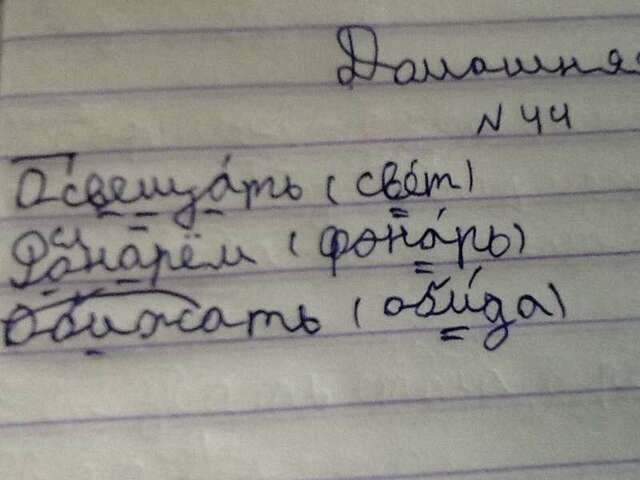 Домашня
N 44
Освещать (свет)
Фонарём (фонарь)
Обижать (обида)